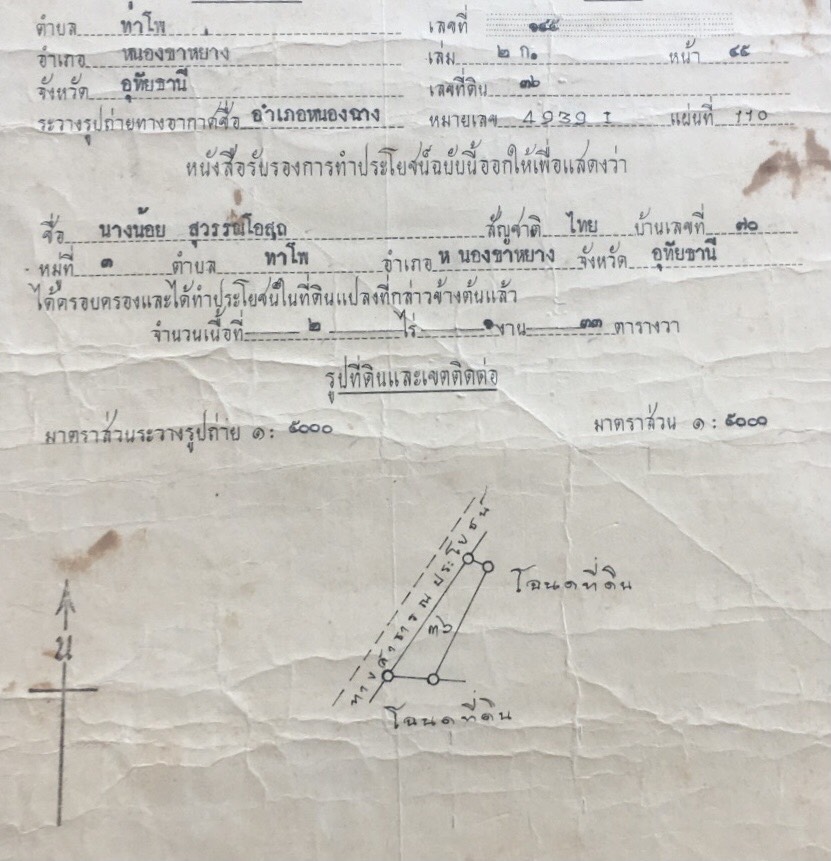 ตำบล ทาโพ เลขที่ ๑๔๕
อำเภอ หนองขาหยาง เล่ม ๒ ก. หน้า ๔๕
จังหวัด อุทัยธานี เลขที่ดิน ๓๖
ระวางรูปถ่ายทางอากาศชื่อ อำเภอหนองฉาง หมายเลข 4939 I แผ่นที่ 110
หนังสือรับรองการทำประโยชน์ฉบับนี้ออกให้เพื่อแสดงว่า
ชื่อ นางน้อย สุวรรณโอสถ สัญชาติ ไทย บ้านเลขที่ ๗๐
หมู่ที่ ๓ ตำบล ทาโพ อำเภอ หนองขาหยาง จังหวัด อุทัยธานี
ได้ครอบครองและได้ทำประโยชน์ในที่ดินแปลงที่กล่าวข้างต้นแล้ว
จำนวนเนื้อที่ ๒ ไร่ ๑ งาน ๓๓ ตารางวา
รูปที่ดินและเขตติดต่อ
มาตราส่วนระวางรูปถ่าย ๑ : ๕๐๐๐ มาตราส่วน ๑ : ๕๐๐๐
ทางสาธารณประโยชน์
โฉนดที่ดิน
๓๖
น
โฉนดที่ดิน